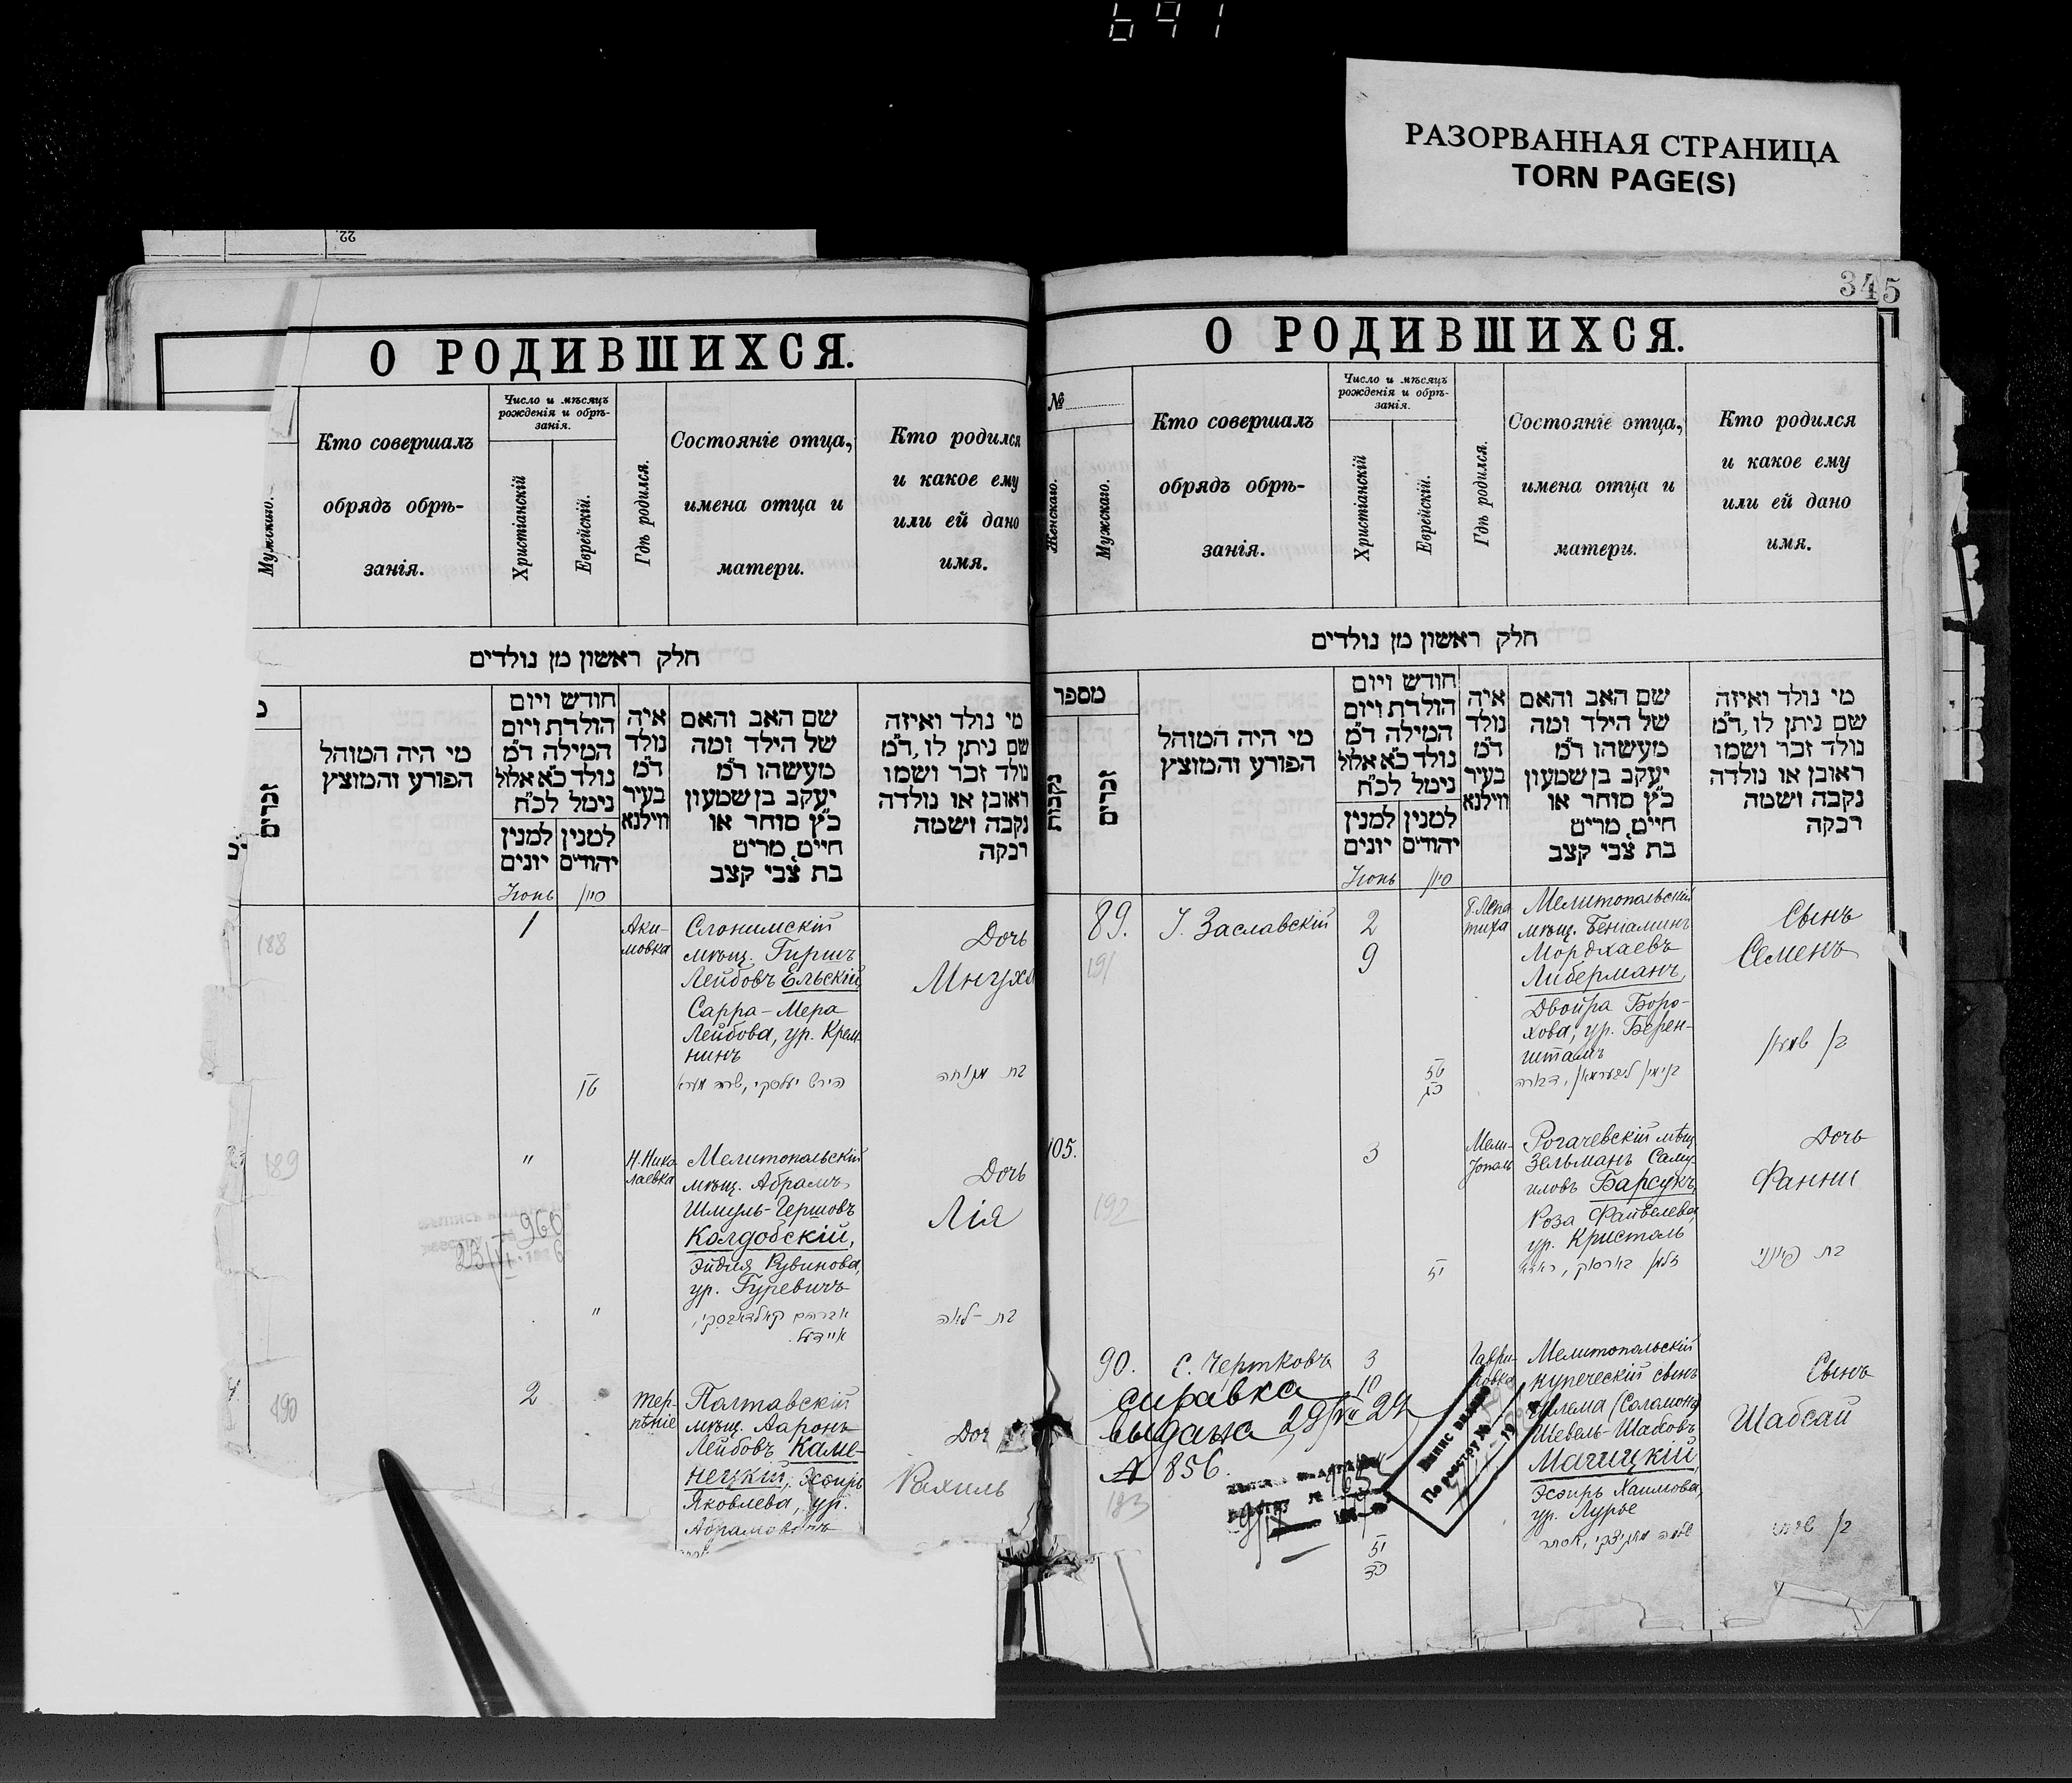 641
РАЗОРВАННАЯ СТРАНИЦА
TORN PAGE(S)
22.
О РОДИВШИХСЯ.
Мужскаго.
Кто совершалъ
обрядъ обрѣ-
занія.
Число и мѣсяцъ
рожденія и обрѣ-
занія.
Христіанскій
Еврейскій.
Гдѣ родился.
Состояніе отца,
имена отца и
матери.
Кто родился
и какое ему
или ей дано
имя.
חלק ראשון מן נולדים
זכרים
מי היה המוהל
הפורע והמוצץ
חודש ויום
הולדת ויום
המילה ד״מ
נולד כ״א אלול
נימל לכ״ח
למנין
יונים
למנין
יהודים
איה
נולד
ד״מ
בעיר
ווילנא
שם האב והאם
של הילד ומה
מעשהו ד״מ
יעקב בן שמעון
כ״ץ סוחר או
חיים, מרים
בת צבי קצב
מי נולד ואיזה
שם ניתן לו, ד״מ
נולד זכר ושמו
ראובן או נולדה
נקבה ושמה
רבקה
Іюнь
סיון
188
1
Аки-
мовка
Слонимскій
мѣщ. Гиршъ
Лейбовъ Ельскій,
Сарра-Мера
Лейбова, ур. Крем-
нинъ
הירש יעלסקי, שרה מערא
Дочь
Мнуха
בת מנוחה
189
"
Н. Нико-
лаевка
Мелитопольскій
мѣщ. Абрамъ
Шмуль-Гершовъ
Колдобскій,
Эйдля Рувинова,
ур. Гуревичъ
אברהם קאלדאבסקי,
איידעל.
"
Дочь
Лія
בת - לאה
960
190
2
Тер-
пѣніе
Полтавскій
мѣщ. Ааронъ
Лейбовъ Каме-
нецкій, Эсѳирь
Яковлева, ур.
Абрамовичъ
Рахиль
345
О РОДИВШИХСЯ.
№
Женскаго.
Мужскаго.
Кто совершалъ
обрядъ обрѣ-
занія.
Число и мѣсяцъ
рожденія и обрѣ-
занія.
Христіанскій
Еврейскій.
Гдѣ родился.
Состояніе отца,
имена отца и
матери.
Кто родился
и какое ему
или ей дано
имя.
חלק ראשון מן נולדים
מספר
נקבות
זכרים
מי היה המוהל
הפורע והמוצץ
חודש ויום
הולדת ויום
המילה ד״מ
נולד כ״א אלול
נימל לכ״ח
למנין
יונים
למנין
יהודים
איה
נולד
ד״מ
בעיר
ווילנא
שם האב והאם
של הילד ומה
מעשהו ד״מ
יעקב בן שמעון
כ״ץ סוחר או
חיים, מרים
בת צבי קצב
מי נולד ואיזה
שם ניתן לו, ד״מ
נולד זכר ושמו
ראובן או נולדה
נקבה ושמה
רבקה
Іюнь
סיון
89.
191
І. Заславскій
2
9
Мелитопольскій
мѣщ. Беніаминъ
Мордхаевъ
Либерманъ,
Двойра Боро-
хова, ур. Берен-
штамъ
בנימין ליבערמאן, דבורה
Сынъ
Семенъ
בן שמעון
105.
192
3
Мели-
тополь
Рогачевскій мѣщ.
Зельманъ Саму-
иловъ Барсукъ,
Роза Файвелева,
ур. Кристалъ
זלמן בארסוק, ראזא
Дочь
Фанни
בת
90.
С. Чертковъ
3
10
Гаври-
ловка
Мелитопольскій
купеческій сынъ
Шлема (Соломонъ)
Шевель-Шаховъ
Мачицкій,
Эсѳирь Хаимова,
ур. Лурье
Сынъ
Шабсай
справка
выдана 29/VII 27
№ 856.
По реестру №